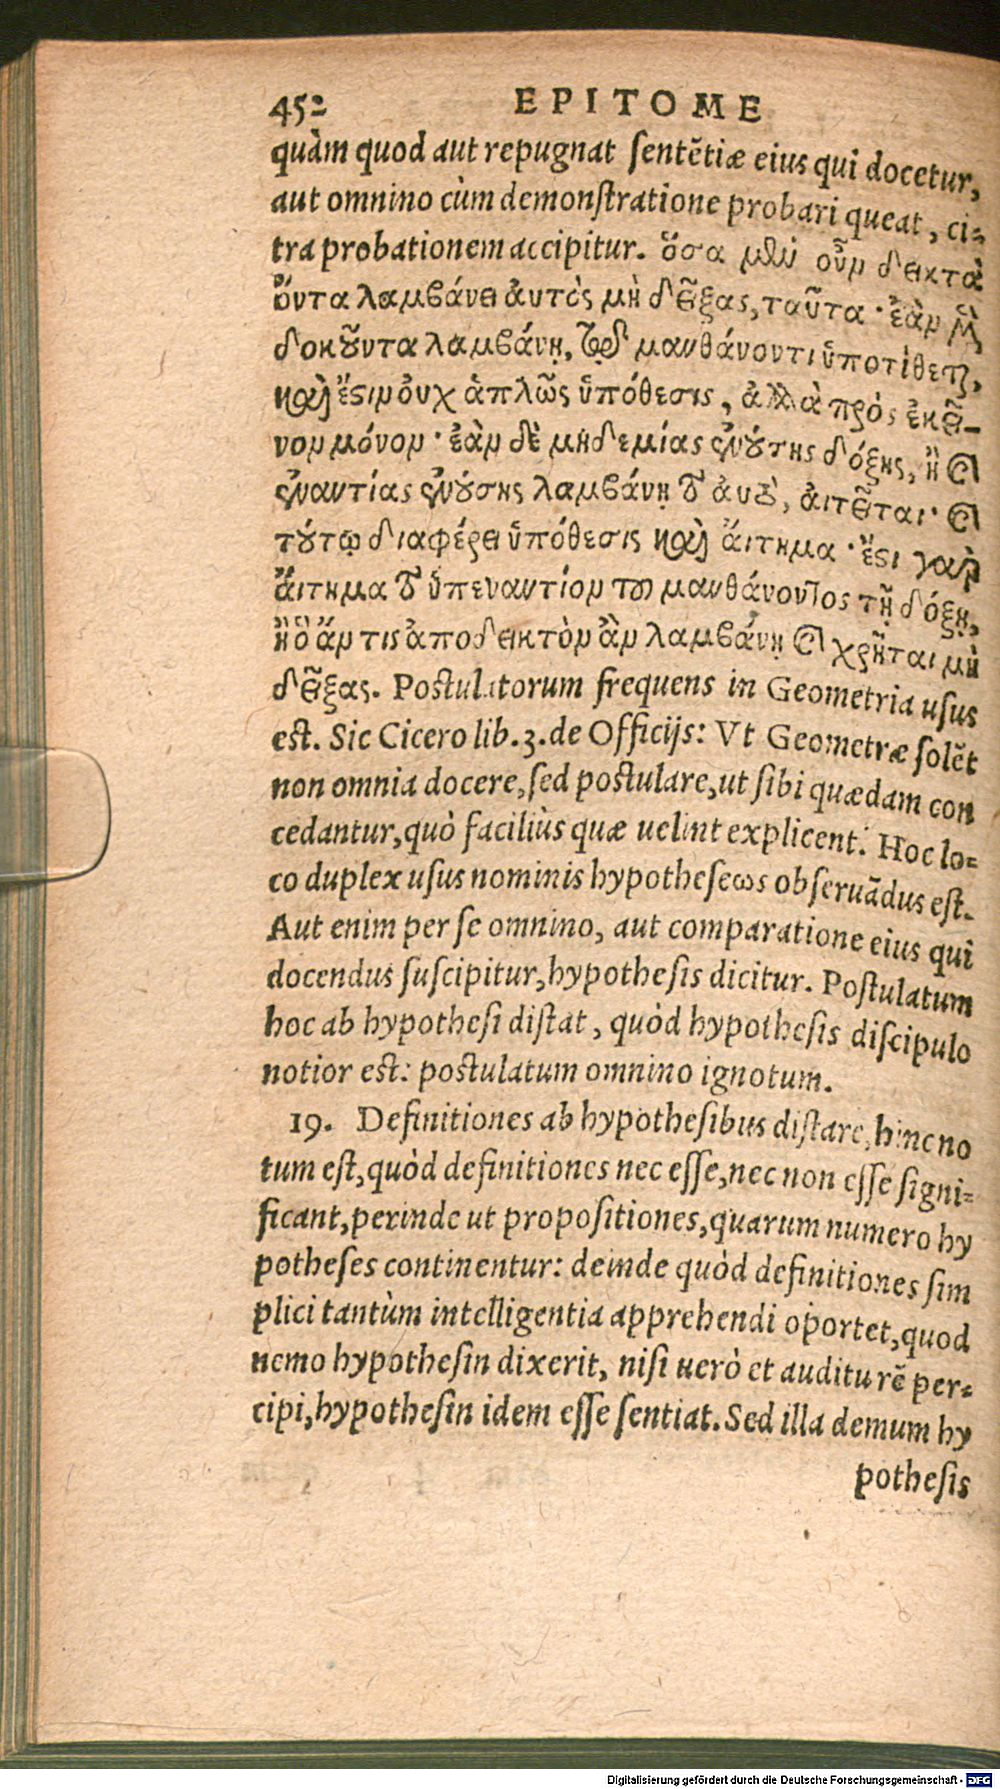 452 EPITOME
quàm quod aut repugnat ſentẽtiæ eius qui docetur,
aut omnino cùm demonſtratione probari queat, ci-
tra probationem accipitur. ὅσα μὲν οὖν δεικτὰ
ὄντα λαμβάνει ἀυτὸς μὴ δεῖξας, ταῦτα· ἐὰν μὲν
δοκοῦντα λαμβάνῃ, τῷ μανθάνοντι ὑποτίθεται,
καὶ ἔστιν οὐχ ἁπλῶς ὑπόθεσις, ἀλλὰ πρὸς ἐκεῖ-
νον μόνον· ἐὰν δὲ μηδεμίας ἐνούσης δόξης, ἢ καὶ
ἐναντίας ἐνούσης λαμβάνῃ τὸ ἀυτὸ, ἀιτεῖται· καὶ
τούτῳ διαφέρει ὑπόθεσις καὶ ἄιτημα· ἔστι γὰρ
ἄιτημα τὸ ὑπεναντίον του μανθάνοντος τῇ δόξῃ,
ἢ ὃ ἄν τις ἀποδεικτὸν ἂν λαμβάνῃ καὶ χρῆται μὴ
δεῖξας. Poſtulatorum frequens in Geometria uſus
eſt. Sic Cicero lib. 3. de Officijs: Vt Geometræ ſolẽt
non omnia docere, ſed poſtulare, ut ſibi quædam con
cedantur, quò faciliùs quæ uelint explicent. Hoc lo-
co duplex uſus nominis hypotheſeωs obſeruãdus eſt.
Aut enim per ſe omnino, aut comparatione eius qui
docendus ſuſcipitur, hypotheſis dicitur. Poſtulatum
hoc ab hypotheſi diſtat, quòd hypotheſis diſcipulo
notior eſt: poſtulatum omnino ignotum.
19. Definitiones ab hypotheſibus diſtare, hinc no
tum eſt, quòd definitiones nec eſſe, nec non eſſe ſigni-
ficant, perinde ut propoſitiones, quarum numero hy
potheſes continentur: deinde quòd definitiones ſim
plici tantùm intelligentia apprehendi oportet, quod
nemo hypotheſin dixerit, niſi uerò et auditu rẽ per-
cipi, hypotheſin idem eſſe ſentiat. Sed illa demum hy
potheſis
Digitalisierung gefördert durch die Deutsche Forschungsgemeinschaft - DFG